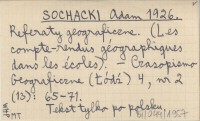 SOCHACKI Adam 1926.
Referaty geograficzne. (Les
compte-rendus géographiques
dans les écoles). – Czasopismo
Geograficzne (Łódź) 4, nr 2
(13): 65-71.
Tekst tylko po polsku.
MT